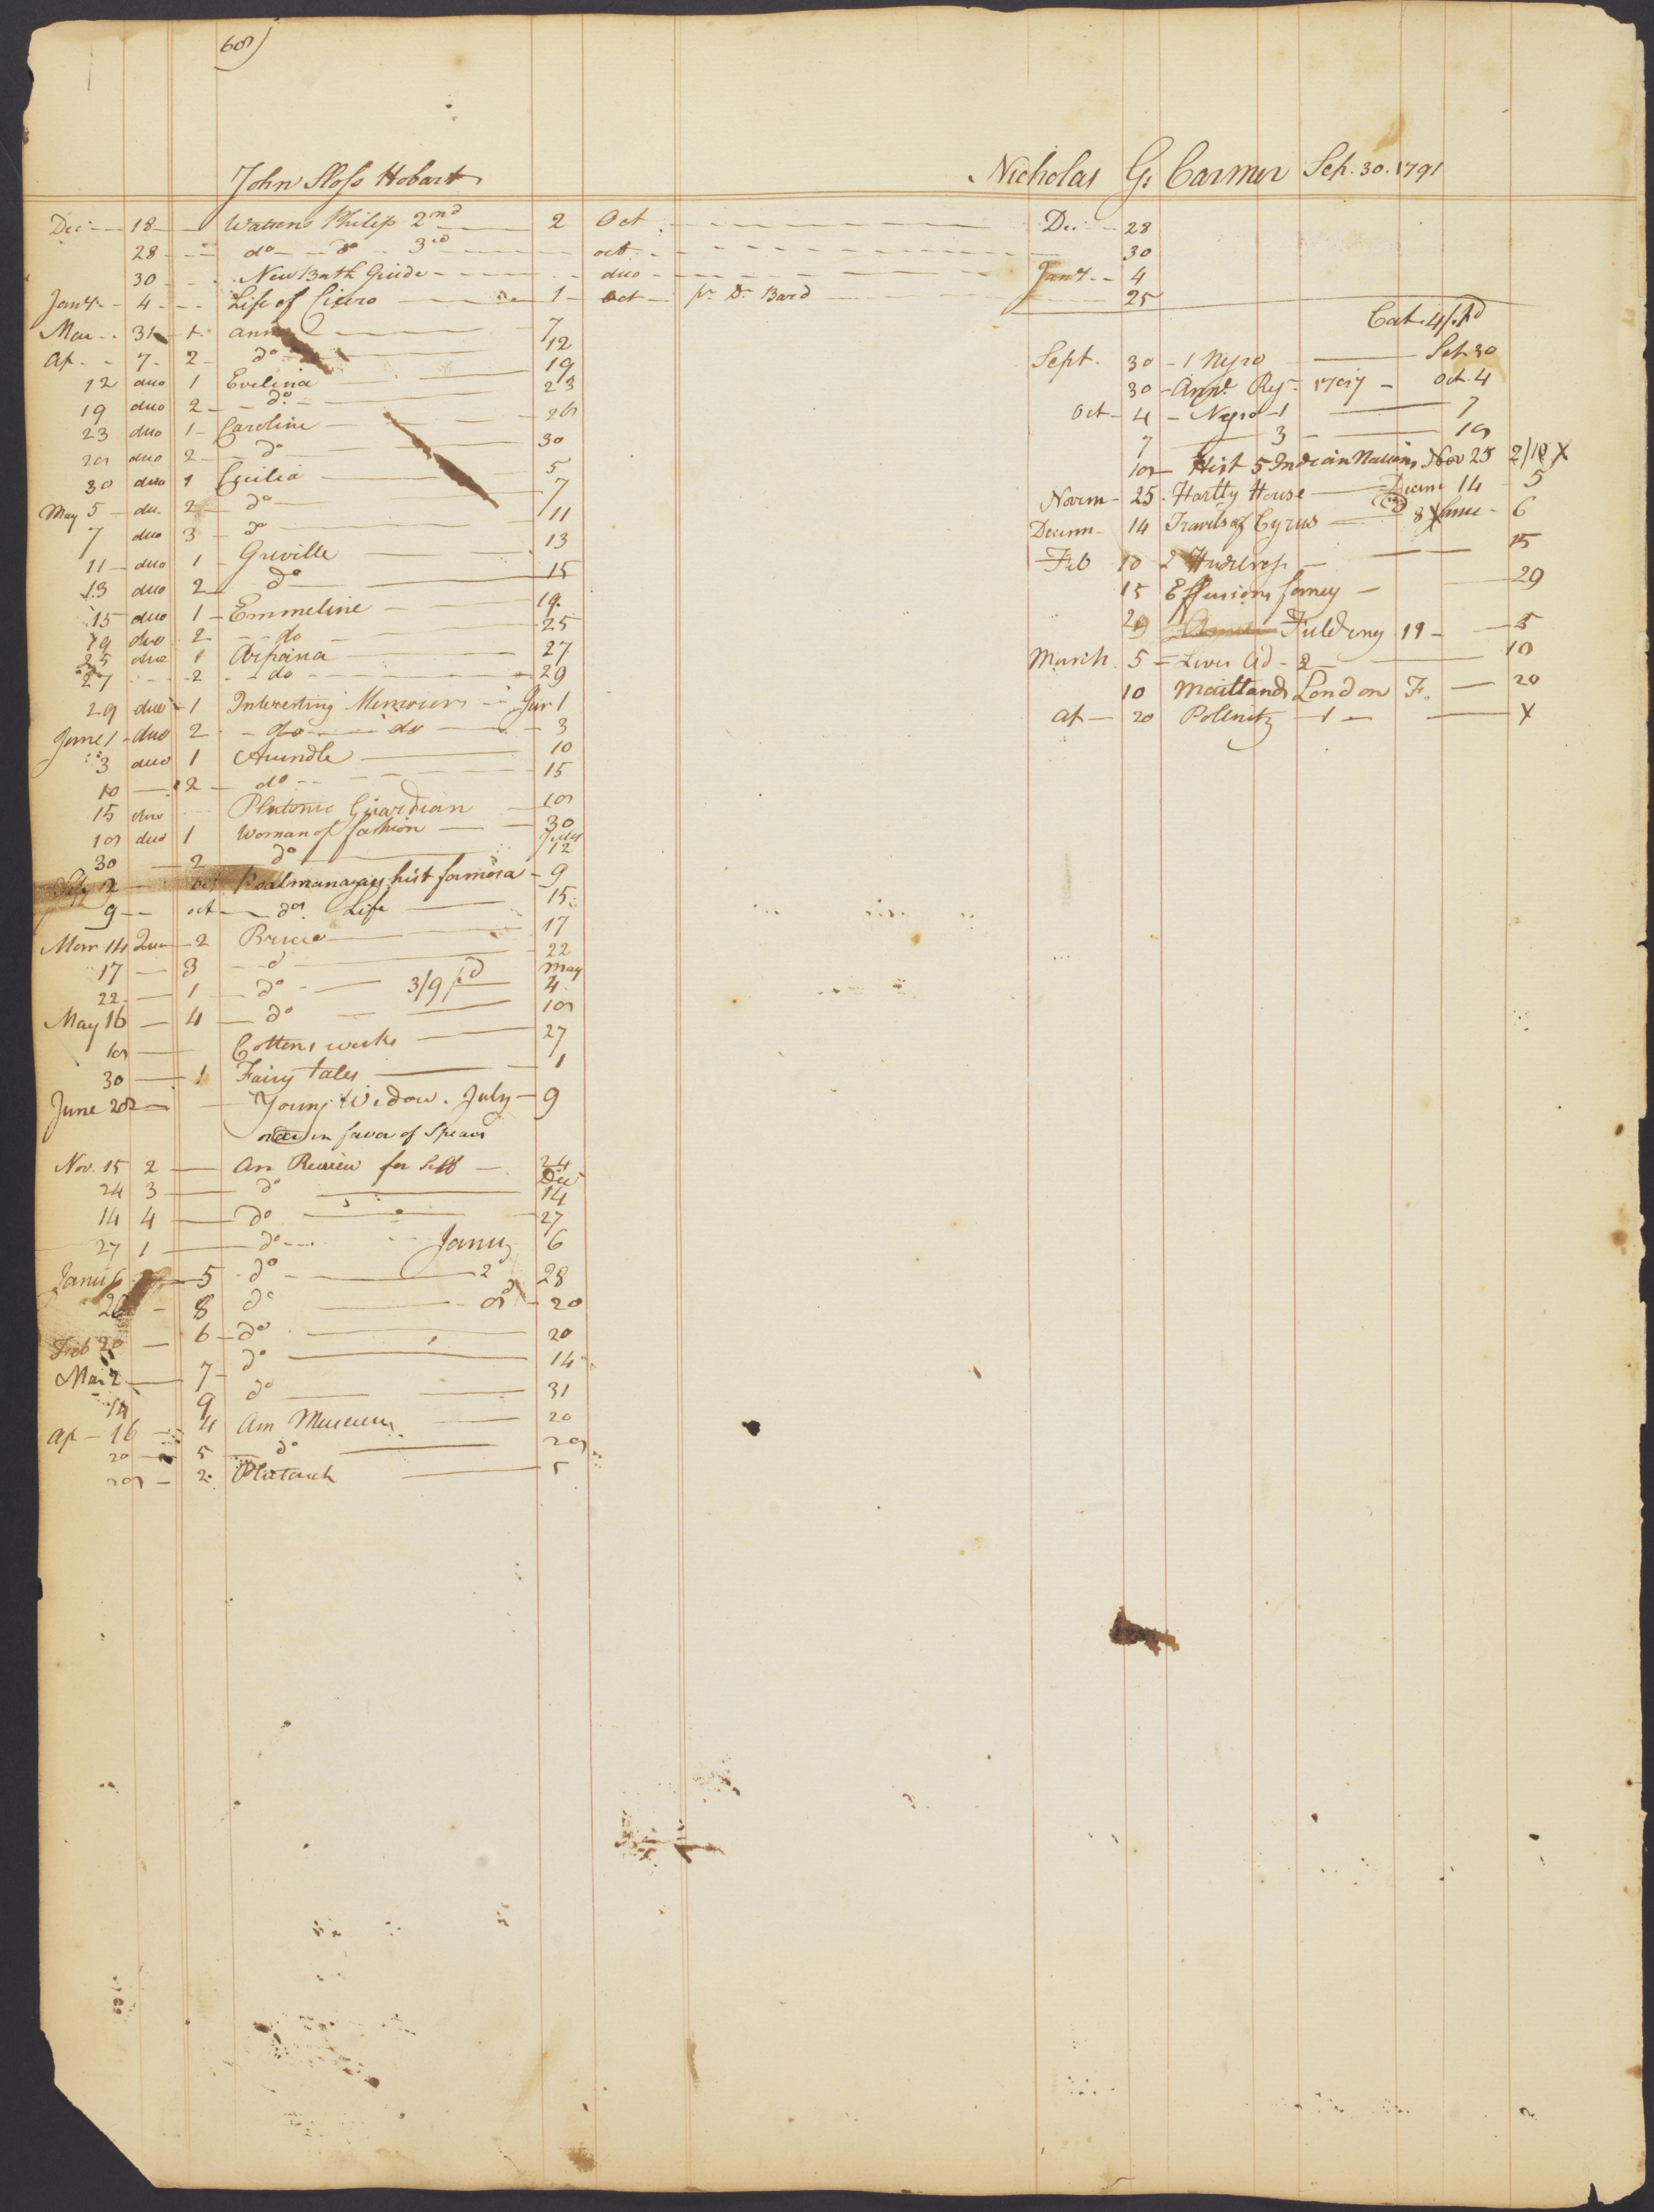 68)
John Sloss Hobart
Dec 18 Watsons Philip 2nd 2 Oct Dec 28
28 do do 3rd oct 30
30 New Bath Guide duo Jany 4
Jany 4 Life of Cicero 1 oct pr Dr Bard 25
Mar 31 1 anna 7
Ap 7 2 do 12
12 duo 1 Evelina 19
19 duo 2 do 23
23 duo 1 Caroline 28
28 duo 2 do 30
30 duo 1 Cecilia 5
May 5 du. 2 do 7
7 duo 3 do 11
11 duo 1 Greville 13
13 duo 2 do 15
15 duo 1 Emmeline 19
19 duo 2 do 25
25 duo 1 Arpasia 27
27 2 do 29
29 duo 1 Interesting Memoiers Jun 1
June 1 duo 2 do do 3
3 duo 1 Arundle 10
10 2 do 15
15 duo Platonic Guardian 18
18 duo 1 Woman of fashion 30
30 2 do July 12
July 2 oct Psalmanazars hist formosa 9
9 oct do Life 15
Mar 14 2 Bruce 17
17 3 do 22
22 1 do 3/9 pd May 4
May 16 4 do 18
18 Cottons works 27
30 1 Fairy tales 1
June 28 Young Widow. July 9
order in favor of Spears
Nov. 15 2 An Review for Self 24
24 3 do Dec 14
14 4 do 27
27 1 do Janu 6
Janu 6 5 do 2 28
28 8 do 20
Feb 20 6 do 20
Mar 2 7 do 14
14 9 do 31
Ap 16 4 Am Museum 20
20 5 do 28
28 2 Plutarch 5
Nicholas G. Carmer Sep. 30. 1791
Cat. 4/ pd
Sept. 30 1 Negro Sep 30
30 Annl Regr 1787 Oct 4
Oct 4 Negro 1 7
7 3 18
18 Hist 5 Indian Nations Nov 25 2/10 X
Novem 25. Hartly House Decem 14 5
Decem 14 Travels of Cyrus 8 X same 6
Feb 10 2 15
15 Effusions 29
29 Fulding 11 5
March 5 2 10
10 Maitlands London F. 20
ap 20 Pollnitz 1 X